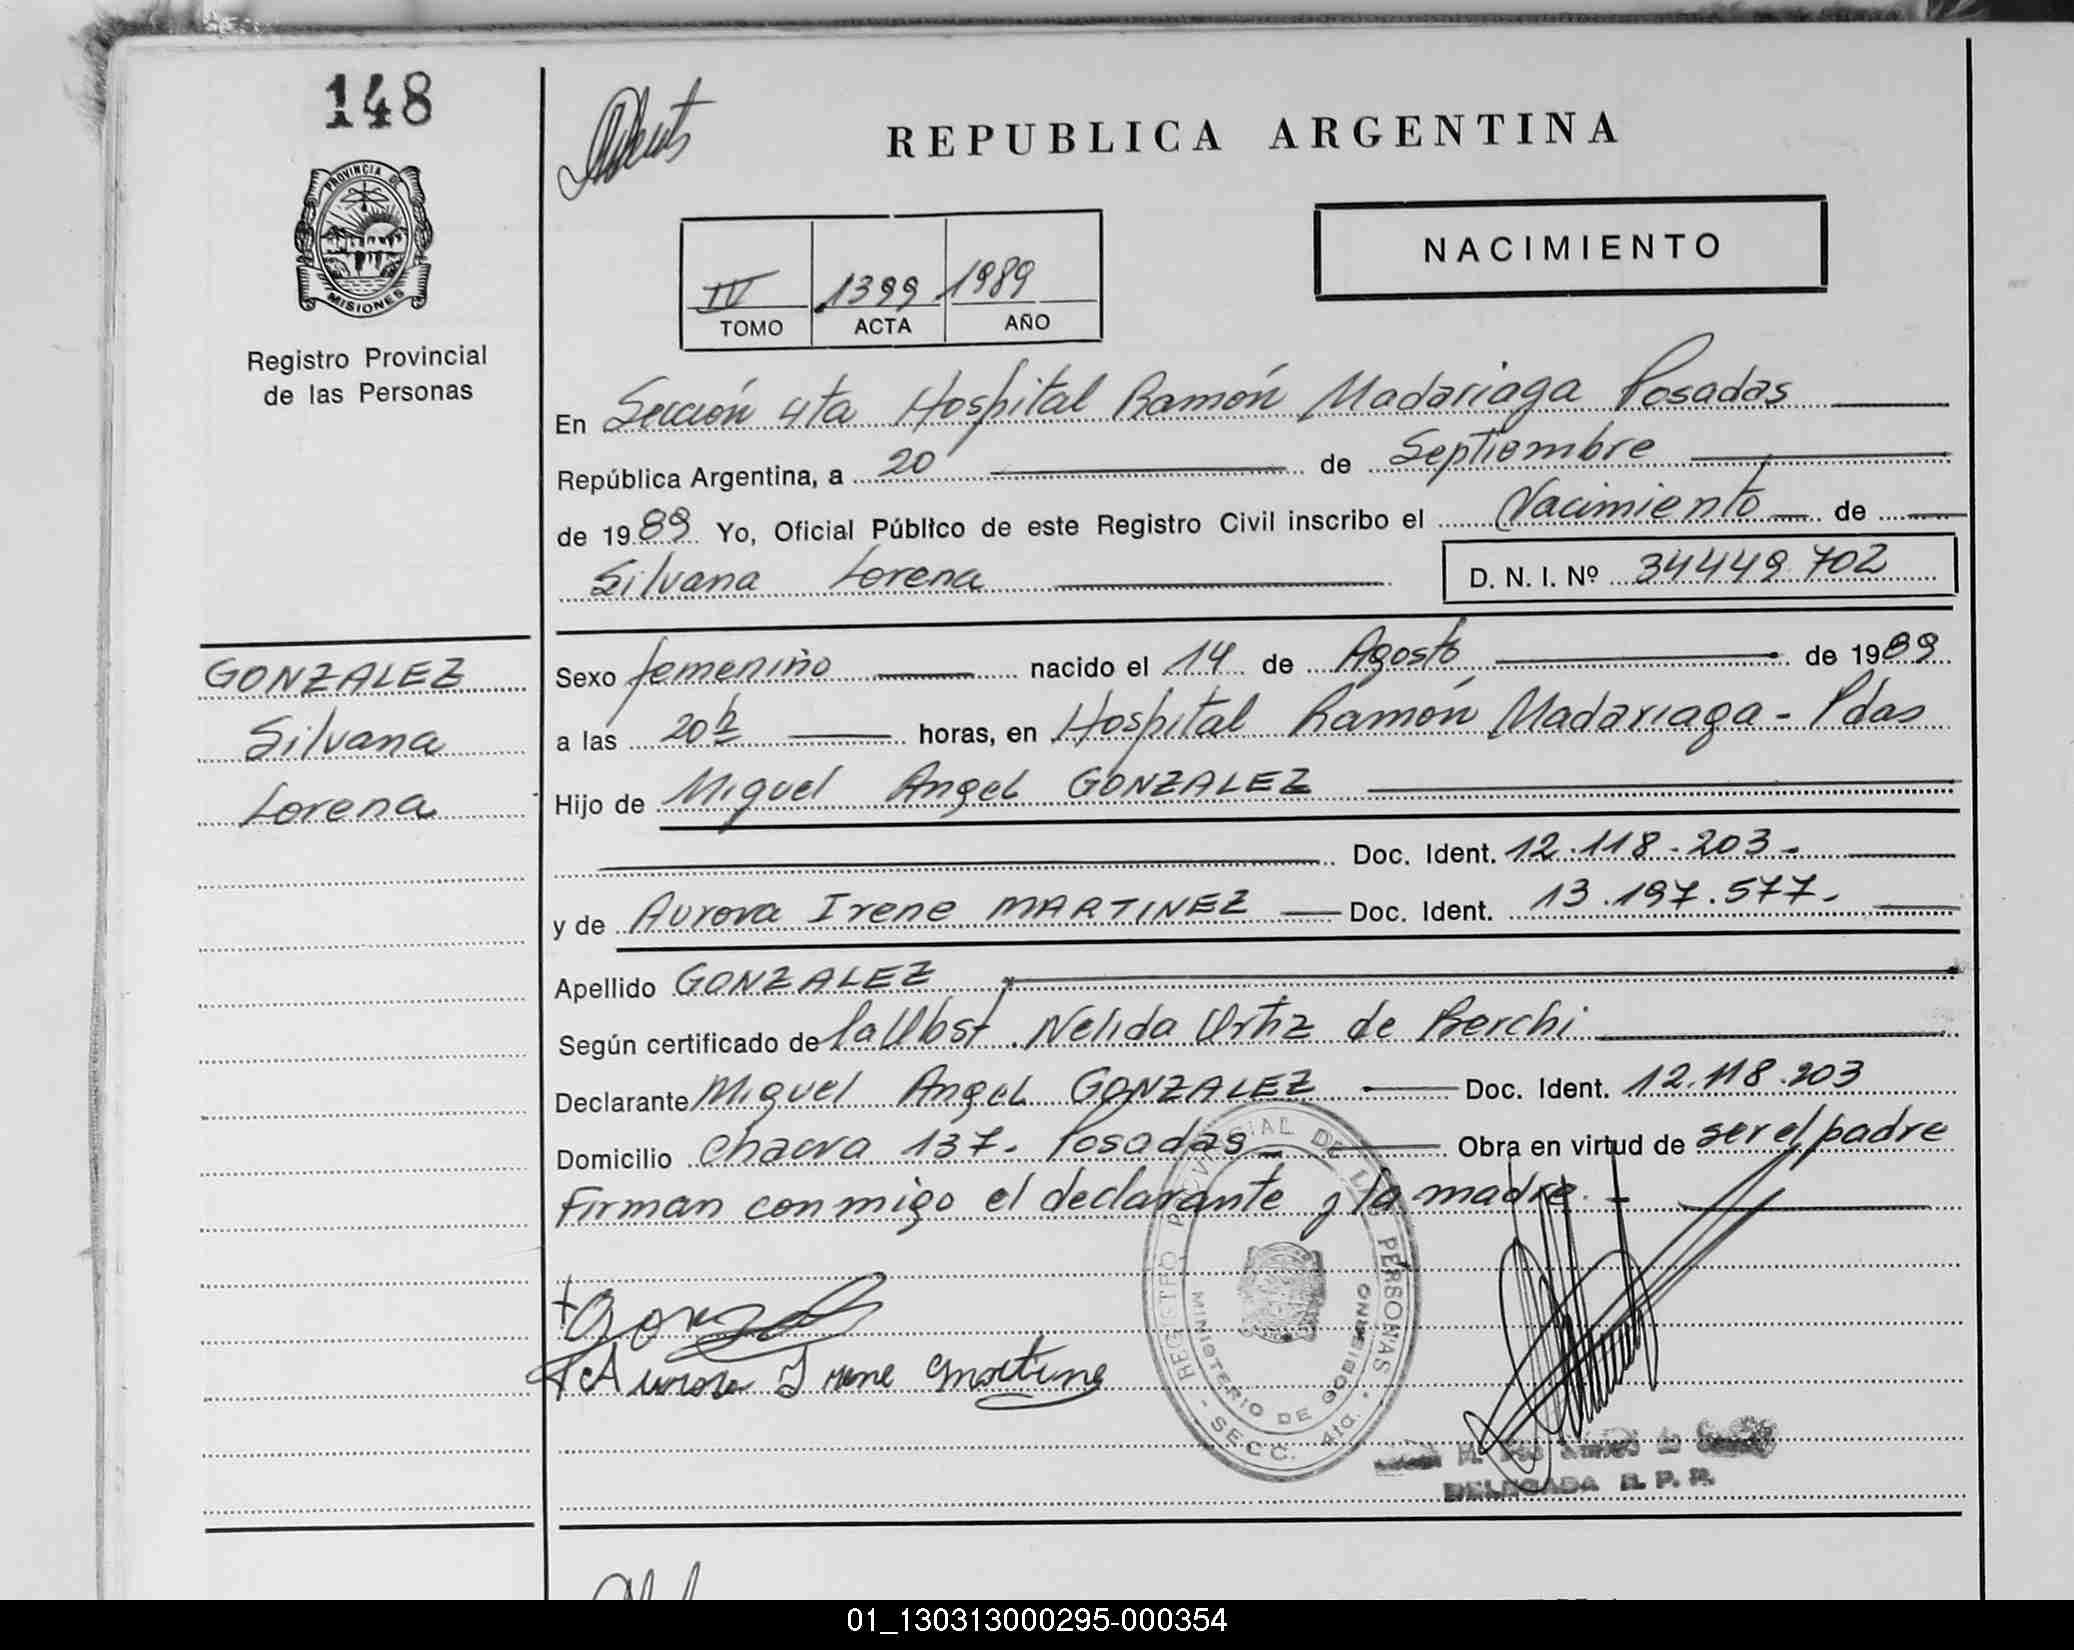 148
PROVINCIA DE
MISIONES
Registro Provincial
de las Personas
REPUBLICA ARGENTINA
NACIMIENTO
IV 1399 1989
TOMO ACTA AÑO
En Sección 4ta Hospital Ramón Madariaga Posadas
República Argentina, a 20 de Septiembre
de 1989 Yo, Oficial Público de este Registro Civil inscribo el Nacimiento de
Silvana Lorena D. N. I. Nº 34449702
GONZALEZ
Silvana
Lorena
Sexo femenino nacido el 14 de Agosto de 1989
a las 20h horas, en Hospital Ramón Madariaga - Pdas
Hijo de Miguel Angel GONZALEZ
Doc. Ident. 12.118.203.-
y de Aurora Irene MARTINEZ Doc. Ident. 13.197.577.-
Apellido GONZALEZ
Según certificado de la Obst. Nelida Ortiz de Berchi
Declarante Miguel Angel GONZALEZ Doc. Ident. 12.118.203
Domicilio Chacra 137. Posadas Obra en virtud de ser el padre
Firman conmigo el declarante y la madre.-
REGISTRO PROVINCIAL DE LAS PERSONAS
MINISTERIO DE GOBIERNO
- SECC. 4ta. -
Aurora Irene
DELEGADA R. P. P.
01_130313000295-000354